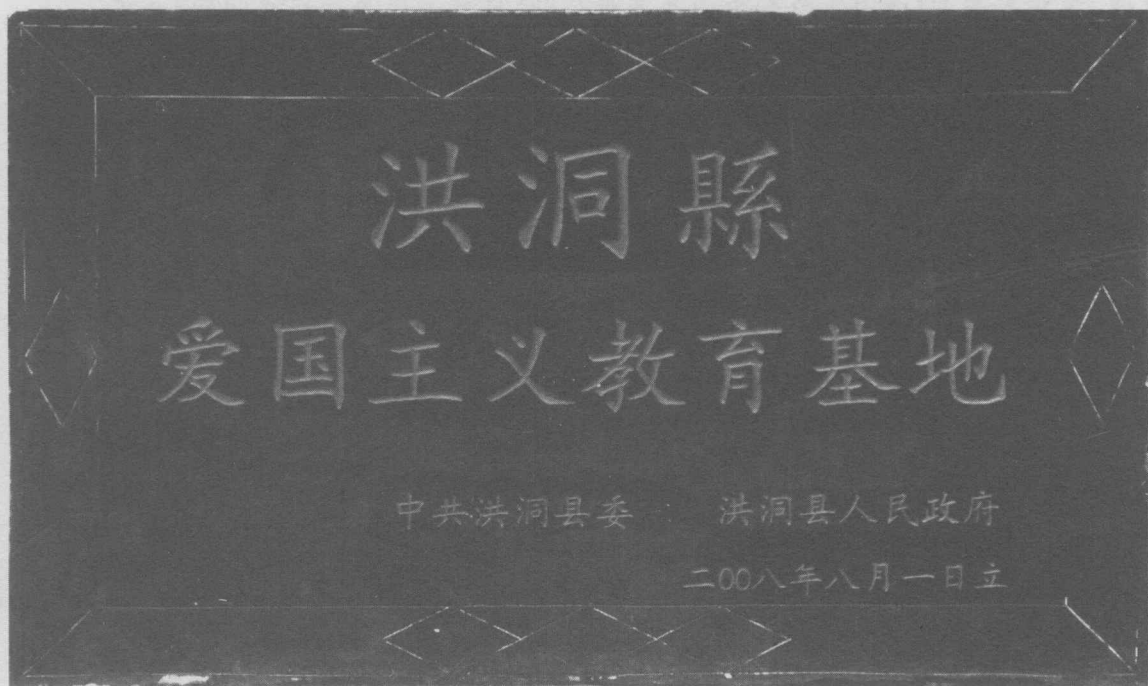 洪洞縣
爱国主义教育基地
中共洪洞县委 洪洞县人民政府
二00八年八月一日立